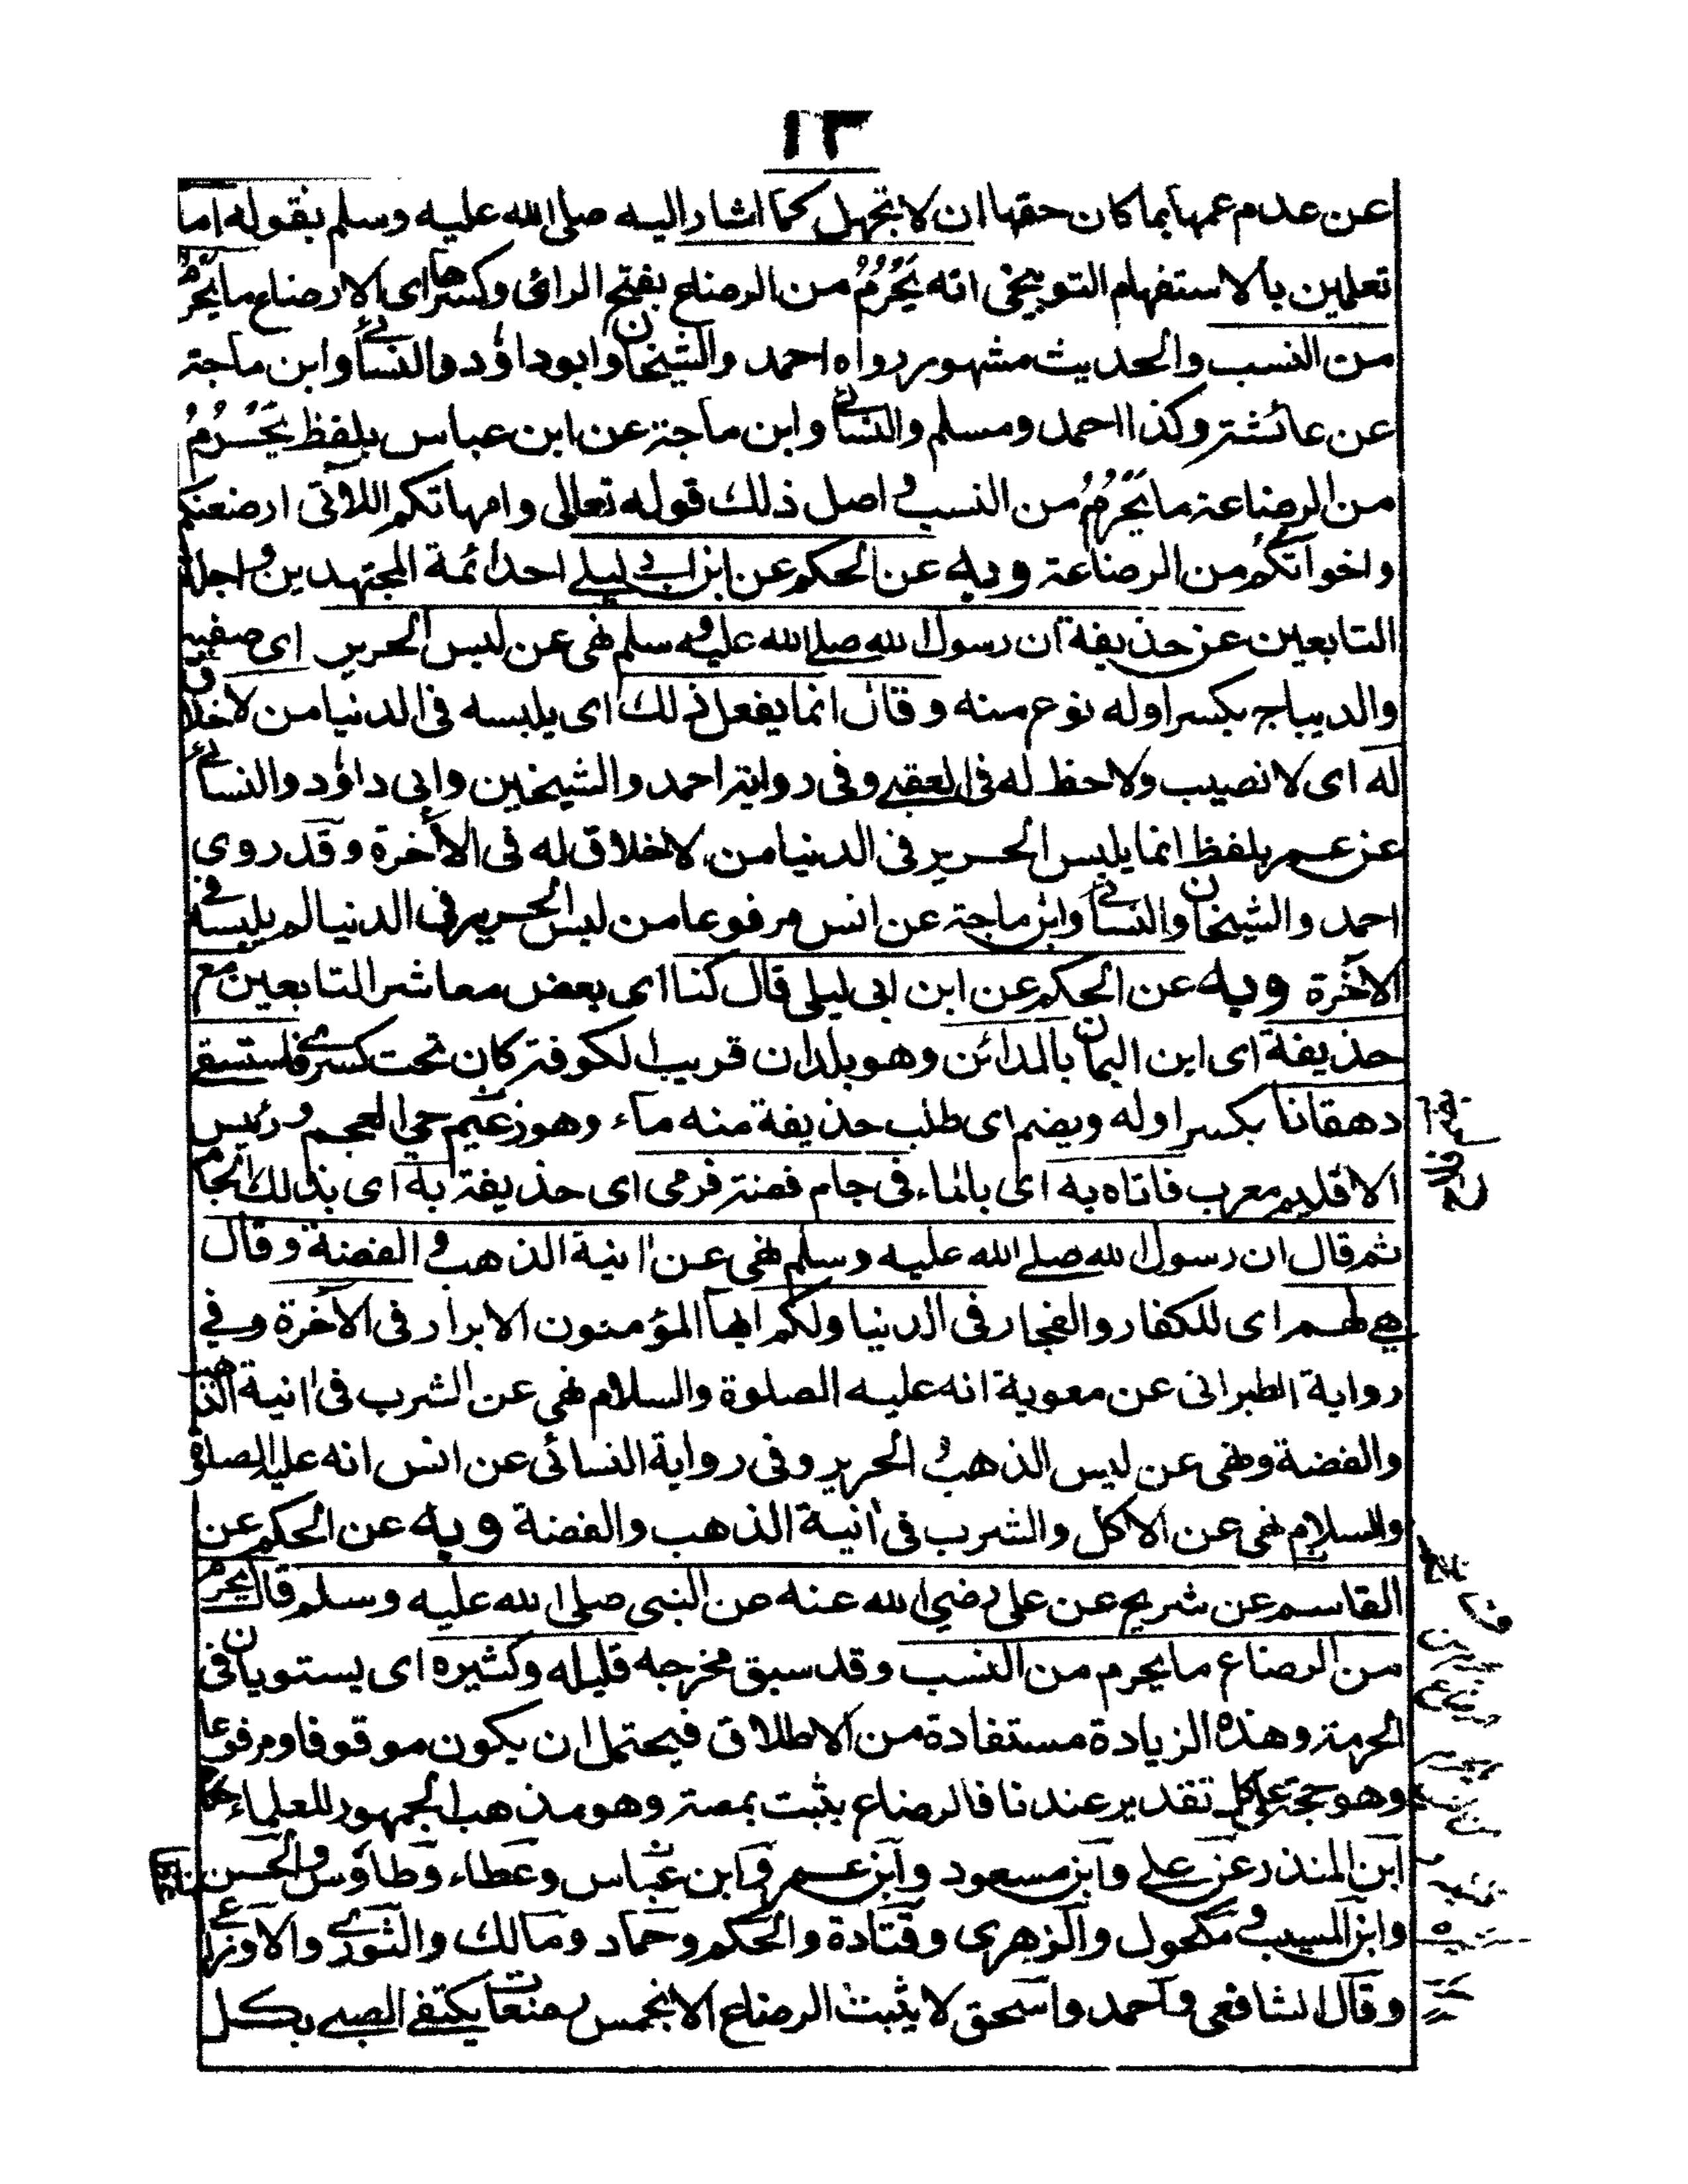 ١٣
عن عدم عمها بما كان حقها ان لا تجهل كما اشار اليه صلى الله عليه وسلم بقوله اما
تعلمين بالاستفهام التوبيخى انه يَحْرُمُ من الرضاع بفتح الراء وكسرها اى الارضاع ما يَحْرُمُ
من النسب والحديث مشهور رواه احمد والشيخان وابوداؤد والنسائى وابن ماجة
عن عائشة وكذا احمد ومسلم والنسائى وابن ماجة عن ابن عباس بلفظ يَحْرُمُ
من الرضاعة ما يَحْرُمُ من النسب و اصل ذلك قوله تعالى وامهاتكم اللاتى ارضعنكم
واخواتكم من الرضاعة وبه عن الحكم عن ابن ابى ليلى احد ائمة المجتهدين و اجلة
التابعين عن حذيفة ان رسول الله صلى الله عليه و سلم نهى عن لبس الحرير اى صفيه
والديباج بكسر اوله نوع منه وقال انما يفعل ذلك اى يلبسه فى الدنيا من لا خلاق
له اى لا نصيب ولا حظ له فى العقبى وفى رواية احمد والشيخين وابى داؤد والنسائى
عن عمر بلفظ انما يلبس الحرير فى الدنيا من لا خلاق له فى الآخرة وقد روى
احمد والشيخان والنسائى وابن ماجة عن انس مرفوعا من لبس الحرير فى الدنيا لم يلبسه فى
الآخرة وبه عن الحكم عن ابن ابى ليلى قال كنا اى بعض معاشر التابعين مع
حذيفة اى ابن اليمان بالمدائن وهو بلدان قريب الكوفة كان تحت كسرى فاستسقى
دهقانا بكسر اوله ويضم اى طلب حذيفة منه ماء وهو زعيم حى العجم و رئيس
الاقليم معرب فاتاه به اى بالماء فى جام فضة فرمى اى حذيفة به اى بذلك الجام
ثم قال ان رسول الله صلى الله عليه وسلم نهى عن انية الذهب و الفضة وقال
هى لهم اى للكفار والفجار فى الدنيا ولكم ايها المؤمنون الابرار فى الآخرة وفى
رواية الطبرانى عن معوية انه عليه الصلوة والسلام نهى عن الشرب فى انية الذهب
والفضة ونهى عن لبس الذهب و الحرير وفى رواية النسائى عن انس انه عليه الصلاة
والسلام نهى عن الاكل والشرب فى آنية الذهب والفضة وبه عن الحكم عن
القاسم عن شريح عن على رضى الله عنه عن النبى صلى الله عليه وسلم قال يحرم
من الرضاع ما يحرم من النسب وقد سبق مخرجه قليله وكثيره اى يستويان فى
الحرمة وهذه الزيادة مستفادة من الاطلاق فيحتمل ان يكون موقوفا ومرفوعا
وهو حجة على كل تقدير عندنا فالرضاع يثبت بمصة وهو مذهب الجمهور للعلماء حكاه
ابن المنذر عن على وابن مسعود وابن عمر وابن عباس وعطاء وطاؤس والحسن
وابن المسيب و مكحول والزهرى وقتادة والحكم وحماد ومالك والثورى والاوزاعى
وقال الشافعى واحمد واسحق لا يثبت الرضاع الا بخمس رضعات يكتفى الصبى بكل